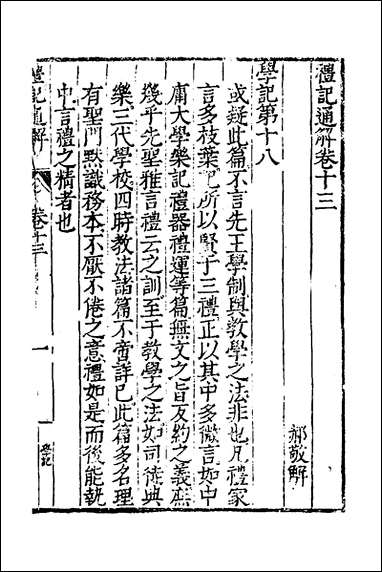 禮記通解卷十三
郝敬解
學記第十八
或疑此篇不言先王學制與教學之法非也凡禮家
言多枝葉記所以賢于三禮正以其中多微言如中
庸大學樂記禮器禮運等篇無文之旨反約之義庶
幾乎先聖雅言禮云之訓至于教學之法如司徒典
樂三代學校四時教法諸篇不啻詳已此篇多名理
有聖門默識務本不厭不倦之意禮如是而後能執
中言禮之精者也
禮記通解
卷十三
一
學記